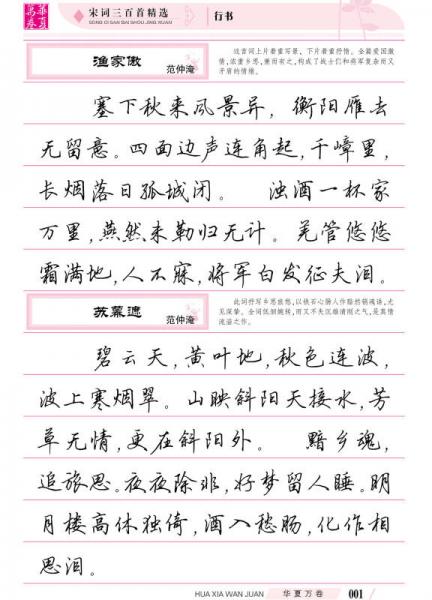 华夏万卷
宋词三百首精选
SONG CI SAN BAI SHOU JING XUAN
行书
渔家傲
范仲淹
这首词上片着重写景，下片着重抒情。全篇爱国激
情，浓重乡思，兼而有之，构成了战士们和将军复杂而又
矛盾的情绪。
塞下秋来风景异，衡阳雁去
无留意。四面边声连角起，千嶂里，
长烟落日孤城闭。 浊酒一杯家
万里，燕然未勒归无计。羌管悠悠
霜满地，人不寐，将军白发征夫泪。
苏幕遮
范仲淹
此词抒写乡思旅愁，以铁石心肠人作黯然销魂语，尤
见深挚。全词低徊婉转，而又不失沉雄清刚之气，是真情
流溢之作。
碧云天，黄叶地，秋色连波，
波上寒烟翠。山映斜阳天接水，芳
草无情，更在斜阳外。 黯乡魂，
追旅思。夜夜除非，好梦留人睡。明
月楼高休独倚，酒入愁肠，化作相
思泪。
HUA XIA WAN JUAN 华夏万卷 001